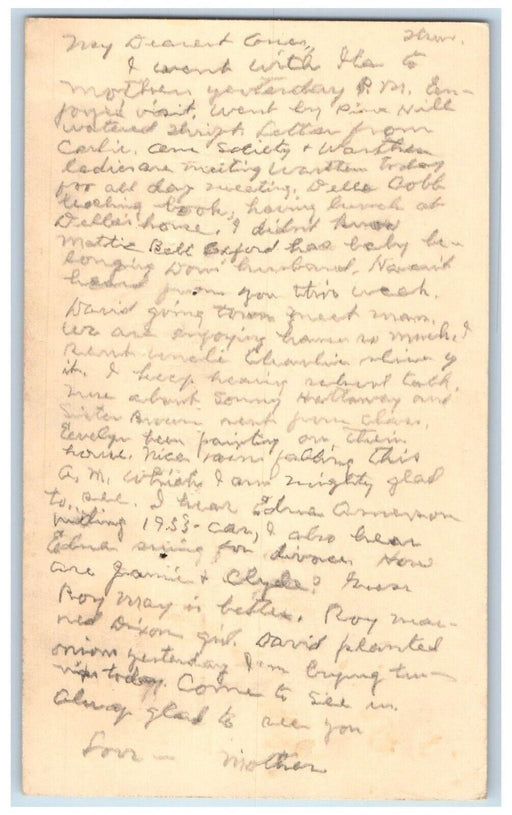 My Dearest Ones, Thur.
I went with Ila to
Mothers yesterday P.M. En-
joyed visit, went by Pine Hill
watered shrub. Letter from
Carlie. Am Society & Warthen
ladies are meeting Warthen today
for all day meeting. Della Cobb
teaching book, having lunch at
Della's house. I didn't know
Mattie Bell Oxford has baby be-
longing husband. Haven't
heard from you this week.
David going town meet man.
We are enjoying ham so much. I
sent Uncle Charlie slice of
it. I keep hearing talk.
more about Sonny Hattaway and
Sister Brown
Evelyn been painting on their
house. Nice rain falling this
A.M. which I am mighty glad
to see. I hear Edna
getting 1953 car, I also hear
Edna suing for divorce. How
are & Clyde? Guess
Roy May is better. Roy mar-
ried Dixon girl. David planted
onions yesterday I'm buying
today. Come to see us.
Always glad to see you
Love – Mother